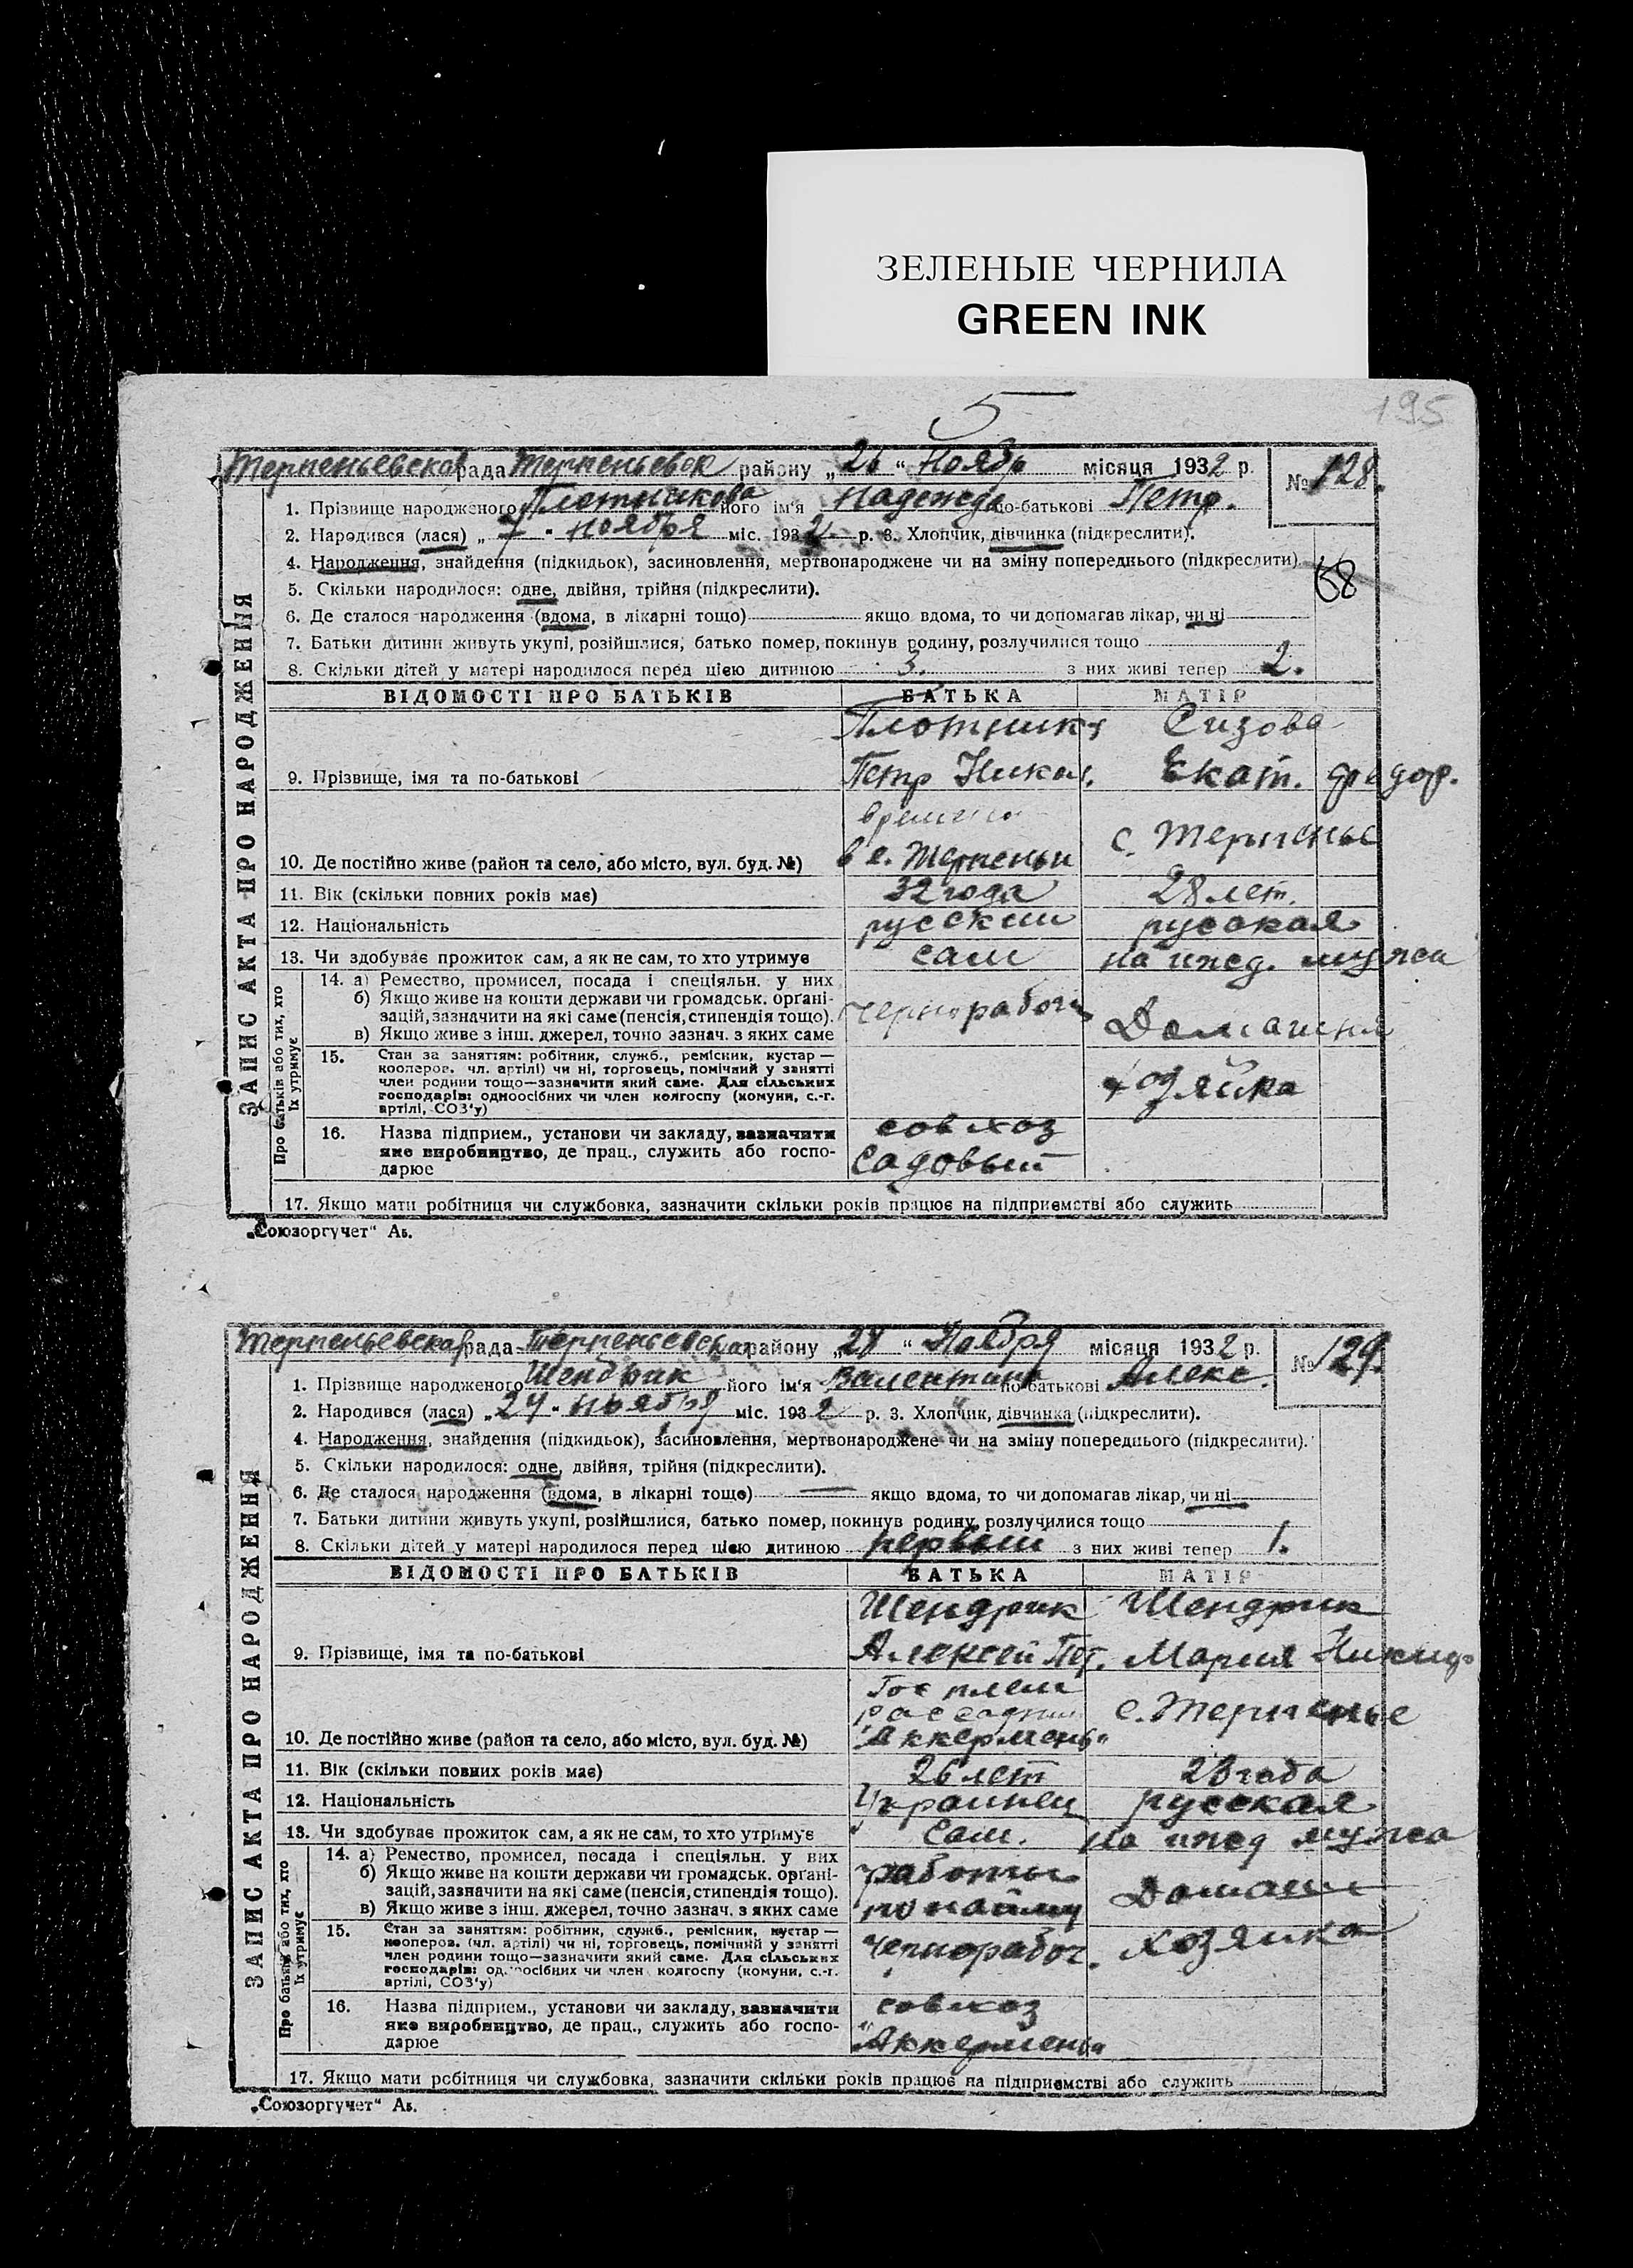 ЗЕЛЕНЫЕ ЧЕРНИЛА
GREEN INK
5
195
Терпеньевская рада Терпеньевск району „26“ Ноября місяця 1932 р. № 128.
1. Прізвище народженого Плотникова його ім'я Надежда по-батькові Петр.
2. Народився (лася) „7“ ноября міс. 1932 р. 3. Хлопчик, дівчинка (підкреслити).
4. Народження, знайдення (підкидьок), засиновлення, мертвонароджене чи на зміну попереднього (підкреслити).
68
5. Скільки народилося: одне, двійня, трійня (підкреслити).
6. Де сталося народження (вдома, в лікарні тощо) якщо вдома, то чи допомагав лікар, чи ні
7. Батьки дитини живуть укупі, розійшлися, батько помер, покинув родину, розлучилися тощо
8. Скільки дітей у матері народилося перед цією дитиною 3. з них живі тепер 2.
ЗАПИС АКТА ПРО НАРОДЖЕННЯ
ВІДОМОСТІ ПРО БАТЬКІВ БАТЬКА МАТІР
Плотников Сизова
9. Прізвище, імя та по-батькові Петр Никол. Екат. Федор.
временно
10. Де постійно живе (район та село, або місто, вул. буд. №) в с. Терпеньи с. Терпенье
11. Вік (скільки повних років має) 32 года 28 лет.
12. Національність русский русская
13. Чи здобуває прожиток сам, а як не сам, то хто утримує сам на ижд. мужа
Про батьків або тих, хто їх утримує
14. а) Ремество, промисел, посада і спеціяльн. у них
б) Якщо живе на кошти держави чи громадськ. органі-
зацій, зазначити на які саме (пенсія, стипендія тощо).
в) Якщо живе з інш. джерел, точно зазнач. з яких саме
чернорабочий Домашня
15. Стан за заняттям: робітник, служб., ремісник, кустар —
кооперов. (чл. артілі) чи ні, торговець, помічний у занятті
член родини тощо—зазначити який саме. Для сільських
господарів: одноосібних чи член колгоспу (комуни, с.-г.
артілі, СОЗ'у)
хозяйка
16. Назва підприєм., установи чи закладу, зазначити
яке виробництво, де прац., служить або госпо-
дарює
совхоз
Садовый
17. Якщо мати робітниця чи службовка, зазначити скільки років працює на підприємстві або служить
„Союзоргучет“ Аб.
Терпеньевская рада Терпеньевськ району „28“ Ноября місяця 1932 р. № 129.
1. Прізвище народженого Шендрик його ім'я Валентина по-батькові Алекс.
2. Народився (лася) „24“ ноября міс. 1932 р. 3. Хлопчик, дівчинка (підкреслити).
4. Народження, знайдення (підкидьок), засиновлення, мертвонароджене чи на зміну попереднього (підкреслити).
5. Скільки народилося: одне, двійня, трійня (підкреслити).
6. Де сталося народження (вдома, в лікарні тощо) якщо вдома, то чи допомагав лікар, чи ні
7. Батьки дитини живуть укупі, розійшлися, батько помер, покинув родину, розлучилися тощо
8. Скільки дітей у матері народилося перед цією дитиною первый з них живі тепер 1.
ЗАПИС АКТА ПРО НАРОДЖЕННЯ
ВІДОМОСТІ ПРО БАТЬКІВ БАТЬКА МАТІР
Шендрик Шендрик
9. Прізвище, імя та по-батькові Алексей Пет. Мария Никиф.
Гос племрассадник
10. Де постійно живе (район та село, або місто, вул. буд. №) „Аккермень“ с. Терпенье
11. Вік (скільки повних років має) 26 лет 23 года
12. Національність Украинец русская
13. Чи здобуває прожиток сам, а як не сам, то хто утримує Сам. на ижд мужа
Про батьків або тих, хто їх утримує
14. а) Ремество, промисел, посада і спеціяльн. у них
б) Якщо живе на кошти держави чи громадськ. органі-
зацій, зазначити на які саме (пенсія, стипендія тощо).
в) Якщо живе з інш. джерел, точно зазнач. з яких саме
работы
по найму
Домашн
15. Стан за заняттям: робітник, служб., ремісник, кустар —
кооперов. (чл. артілі) чи ні, торговець, помічний у занятті
член родини тощо—зазначити який саме. Для сільських
господарів: одноосібних чи член колгоспу (комуни, с.-г.
артілі, СОЗ'у)
чернорабоч. хозяйка
16. Назва підприєм., установи чи закладу, зазначити
яке виробництво, де прац., служить або госпо-
дарює
совхоз
„Аккермень“
17. Якщо мати робітниця чи службовка, зазначити скільки років працює на підприємстві або служить
„Союзоргучет“ Аб.